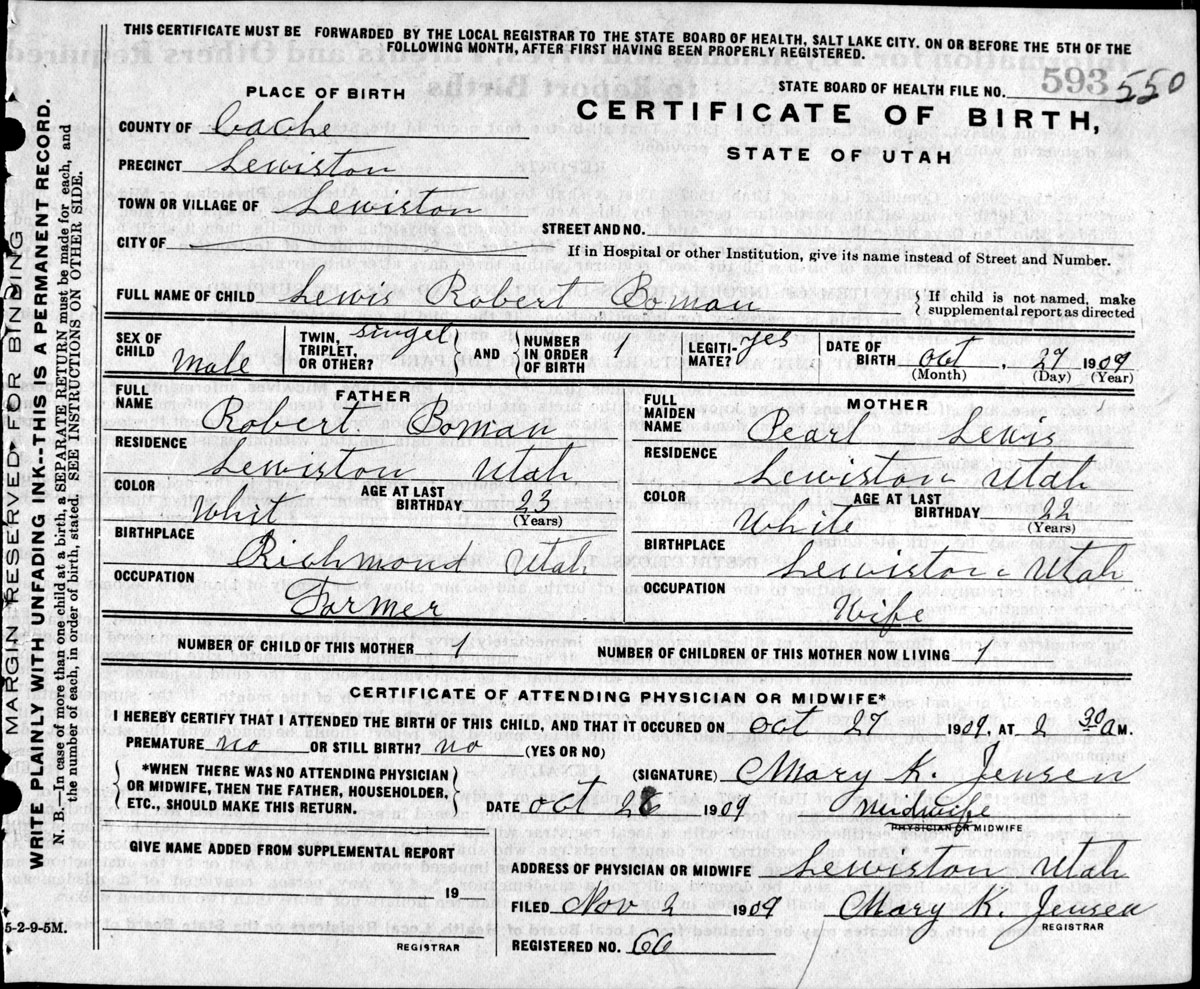 THIS CERTIFICATE MUST BE FORWARDED BY THE LOCAL REGISTRAR TO THE STATE BOARD OF HEALTH, SALT LAKE CITY. ON OR BEFORE THE 5TH OF THE
FOLLOWING MONTH, AFTER FIRST HAVING BEEN PROPERLY REGISTERED.
STATE BOARD OF HEALTH FILE NO. 593 550
PLACE OF BIRTH
CERTIFICATE OF BIRTH,
STATE OF UTAH
COUNTY OF Cache
PRECINCT Lewiston
TOWN OR VILLAGE OF Lewiston
CITY OF
STREET AND NO.
If in Hospital or other Institution, give its name instead of Street and Number.
FULL NAME OF CHILD Lewis Robert Boman
{ If child is not named, make
supplemental report as directed
SEX OF CHILD Male
TWIN, TRIPLET, OR OTHER? singel } AND { NUMBER IN ORDER OF BIRTH
LEGITI-MATE? yes
DATE OF BIRTH Oct, 27 1909
(Month) (Day) (Year)
FATHER
FULL NAME Robert Boman
RESIDENCE Lewiston Utah
COLOR Whit AGE AT LAST BIRTHDAY 23
(Years)
BIRTHPLACE Richmond Utah
OCCUPATION Farmer
MOTHER
FULL MAIDEN NAME Pearl Lewis
RESIDENCE Lewiston Utah
COLOR White AGE AT LAST BIRTHDAY 22
(Years)
BIRTHPLACE Lewiston Utah
OCCUPATION Wife
NUMBER OF CHILD OF THIS MOTHER 1 NUMBER OF CHILDREN OF THIS MOTHER NOW LIVING 1
CERTIFICATE OF ATTENDING PHYSICIAN OR MIDWIFE*
I HEREBY CERTIFY THAT I ATTENDED THE BIRTH OF THIS CHILD, AND THAT IT OCCURED ON oct 27 1909, AT 2 30 a M.
PREMATURE no OR STILL BIRTH? no (YES OR NO)
{ *WHEN THERE WAS NO ATTENDING PHYSICIAN
OR MIDWIFE, THEN THE FATHER, HOUSEHOLDER,
ETC., SHOULD MAKE THIS RETURN. }
(SIGNATURE) Mary K. Jensen
DATE oct 28 1909 midwife
PHYSICIAN OR MIDWIFE
GIVE NAME ADDED FROM SUPPLEMENTAL REPORT
19
REGISTRAR
ADDRESS OF PHYSICIAN OR MIDWIFE Lewiston Utah
FILED Nov 2 1909 Mary K. Jensen
REGISTRAR
REGISTERED NO. 66
5-2-9-5M.
MARGIN RESERVED FOR BINDING
WRITE PLAINLY WITH UNFADING INK--THIS IS A PERMANENT RECORD.
N. B.—In case of more than one child at a birth, a SEPARATE RETURN must be made for each, and
the number of each, in order of birth, stated. SEE INSTRUCTIONS ON OTHER SIDE.